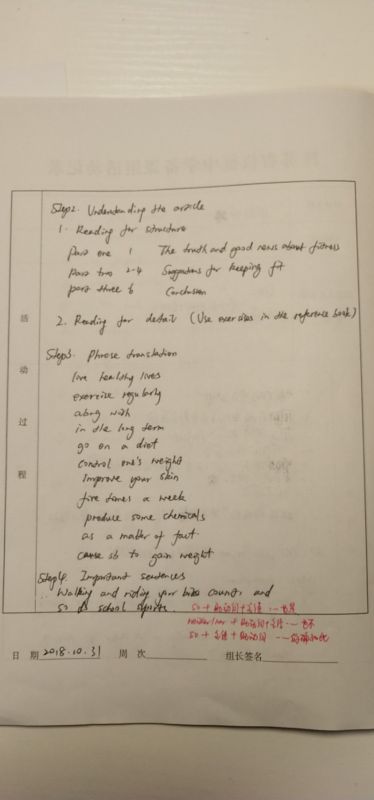 Step2. Understanding the article
1. Reading for structure
part one 1 The truth and good news about fitness
part two 2-4 Suggestions for keeping fit
part three 6 Conclusion
2. Reading for detail (Use exercises in the reference book)
Step3. Phrase translation
live healthy lives
exercise regularly
along with
in the long term
go on a diet
control one's weight
Improve your skin
five times a week
produce some chemicals
as a matter of fact
cause sb to gain weight
Step4. Important sentences
Walking and riding your bike counts, and
so do school sports.
so + 助动词+主语 … 也是
neither/nor + 助动词+主语 … 也不
so + 主语 + 助动词 … 的确如此
活动过程
日 期 2018.10.31 周 次 组长签名